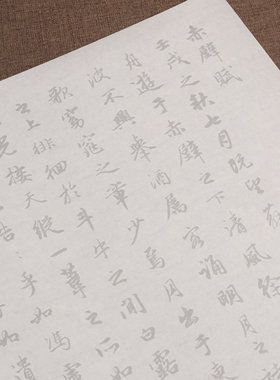 赤壁賦
壬戌之秋七月既望蘇
舟遊于赤壁之下清風徐
波不興舉酒屬客誦明月
歌窈窕之章少焉月出于東
之上徘徊於斗牛之間白露
光接天縱一葦之所如
浩乎如馮
如遺